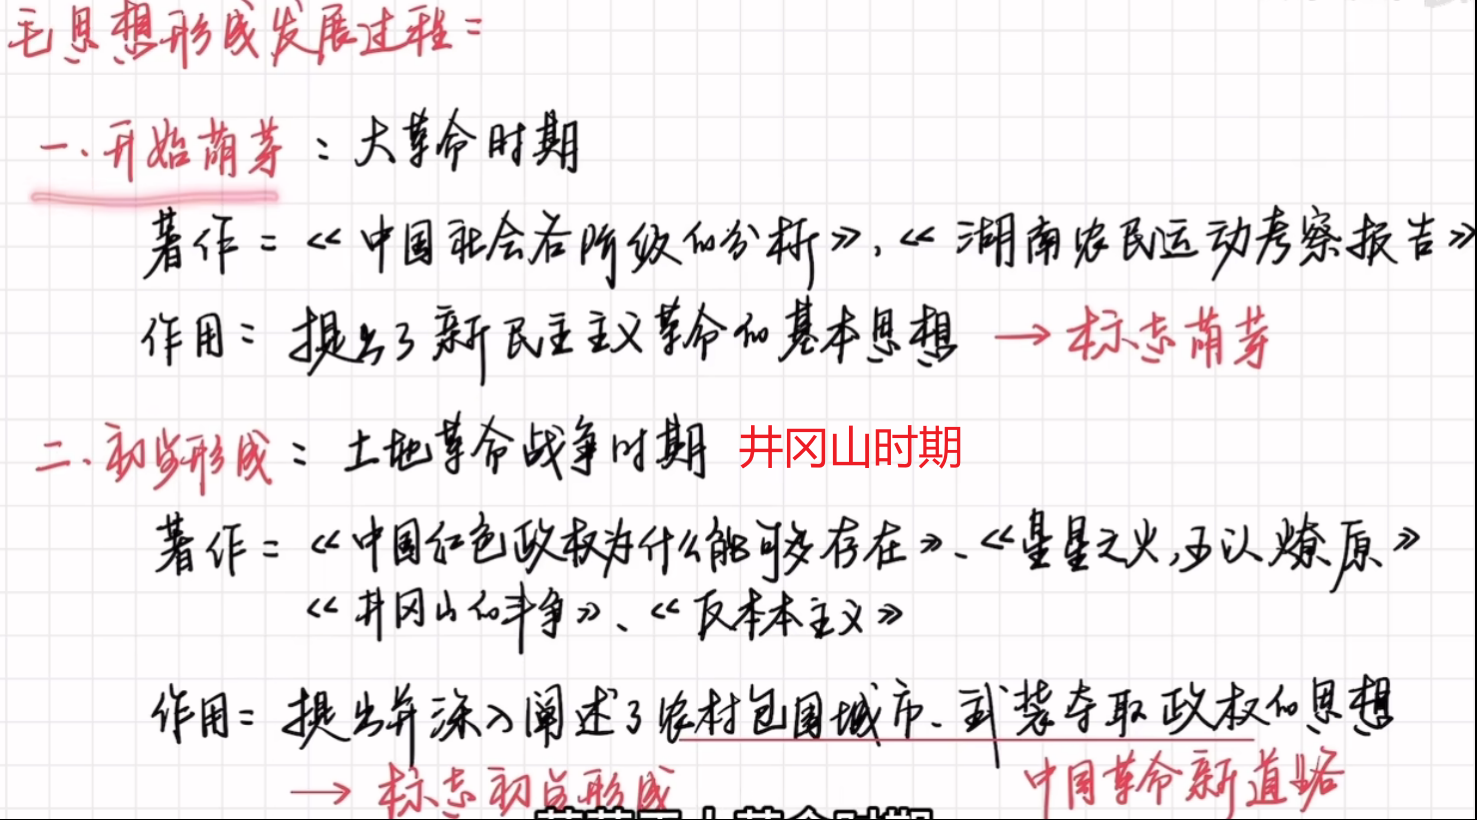 毛思想形成发展过程：
一、开始萌芽：大革命时期
著作：《中国社会各阶级的分析》,《湖南农民运动考察报告》
作用：提出了新民主主义革命的基本思想 → 标志萌芽
二、初步形成：土地革命战争时期 井冈山时期
著作：《中国红色政权为什么能够存在》、《星星之火,可以燎原》
《井冈山的斗争》、《反本本主义》
作用：提出并深入阐述了农村包围城市、武装夺取政权的思想
→ 标志初步形成 中国革命新道路